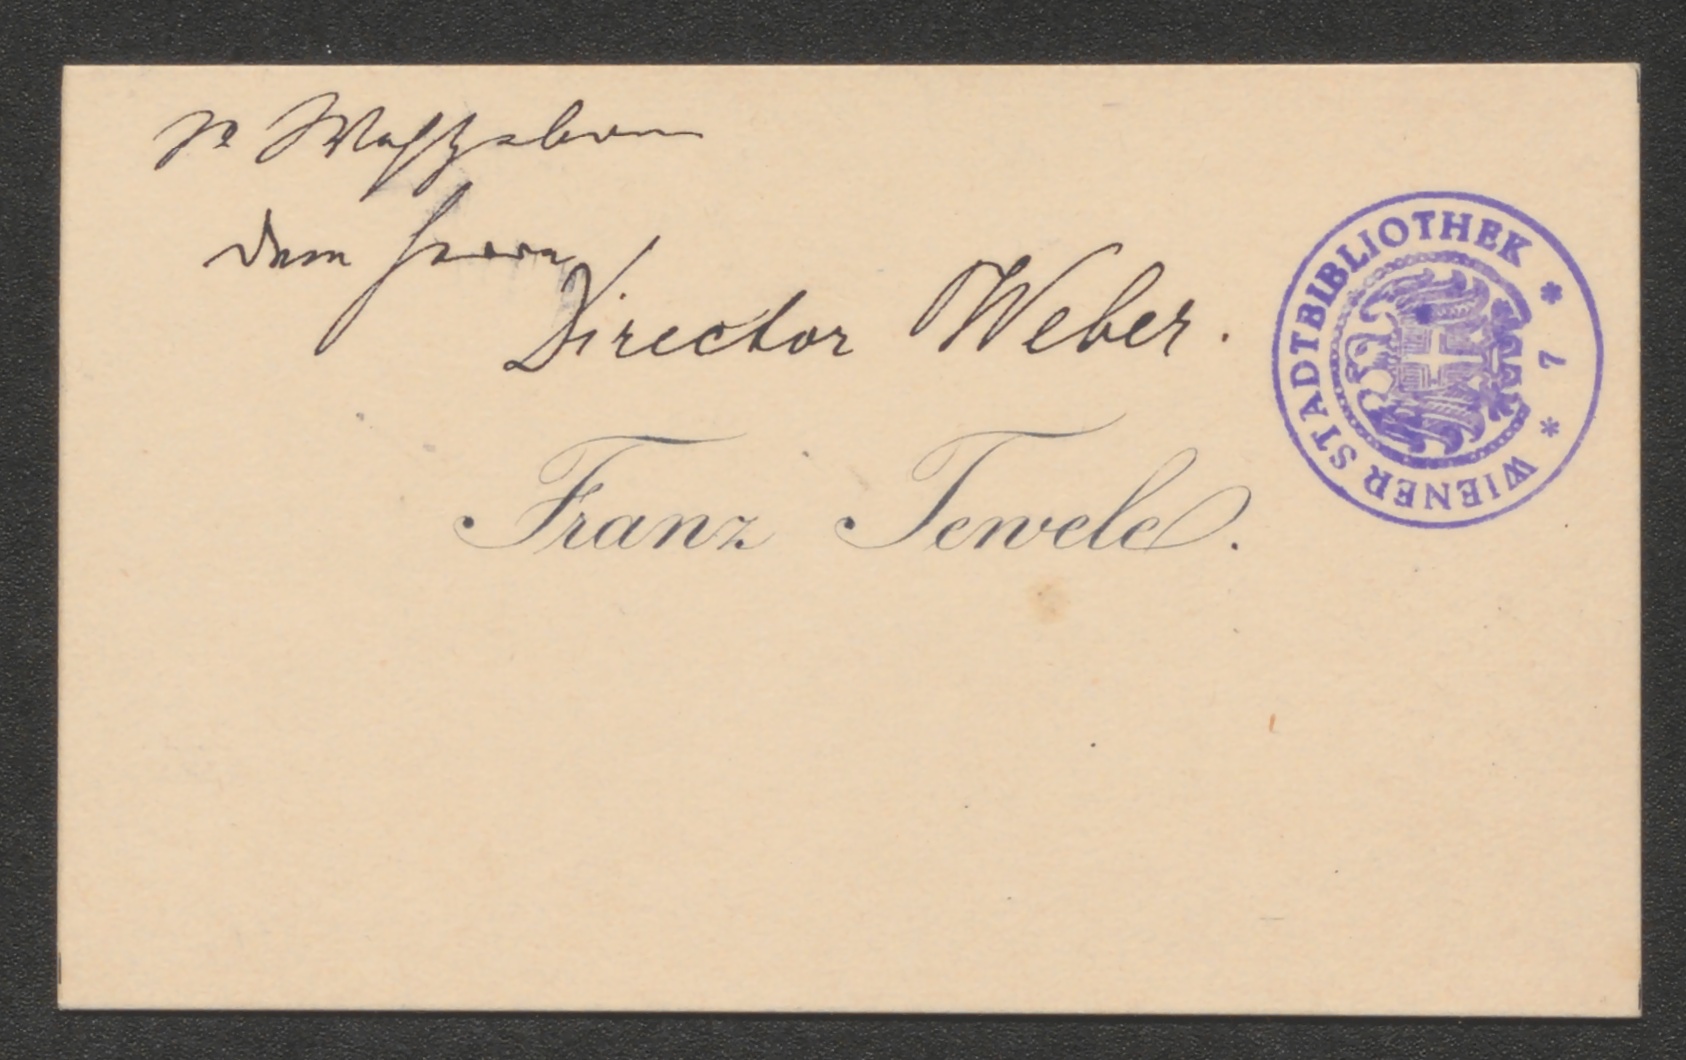 Sr Wohlgeboren
dem Herrn
Director Weber.
Franz Tewele.
WIENER STADTBIBLIOTHEK * 7 *